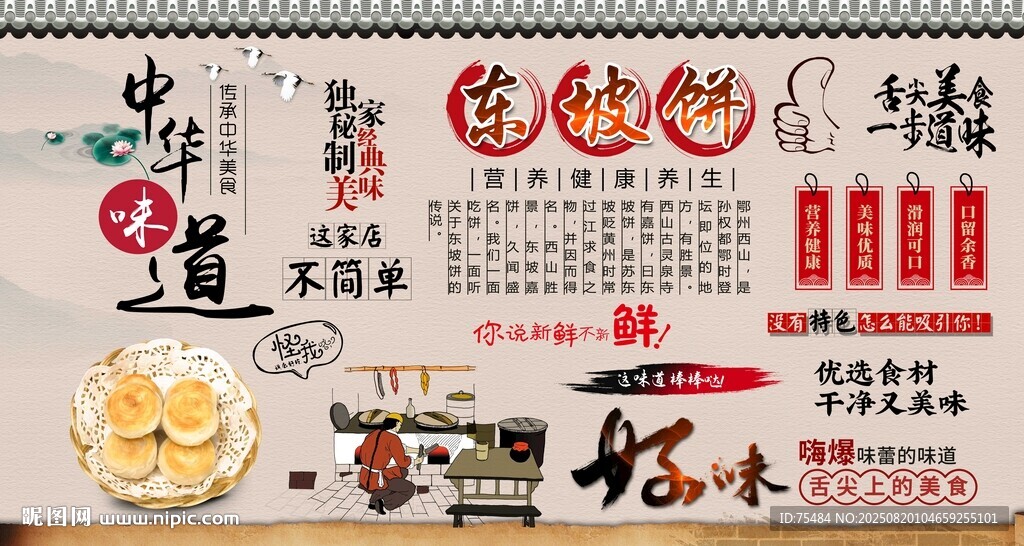 中华
味
道
传承中华美食
独家秘制美
经典味
这家店
不简单
东坡饼
营养健康养生
鄂州西山，是
孙权都鄂时登
坛即位的地
方，有胜景。
西山古灵泉寺
有嘉饼，曰东
坡饼，是苏东
坡贬黄州时常
过江求食之
物，并因而得
名。西山胜
景，东坡嘉
饼，久闻盛
名。我们一面
吃饼，一面听
关于东坡饼的
传说。
舌尖美食
一步道味
营养健康
美味优质
滑润可口
口留余香
没有特色怎么能吸引你！
你说新鲜不新鲜！
怪我
这味道棒棒哒！
好味
优选食材
干净又美味
嗨爆味蕾的味道
舌尖上的美食
昵图网 www.nipic.com
ID:75484 NO:20250820104659255101